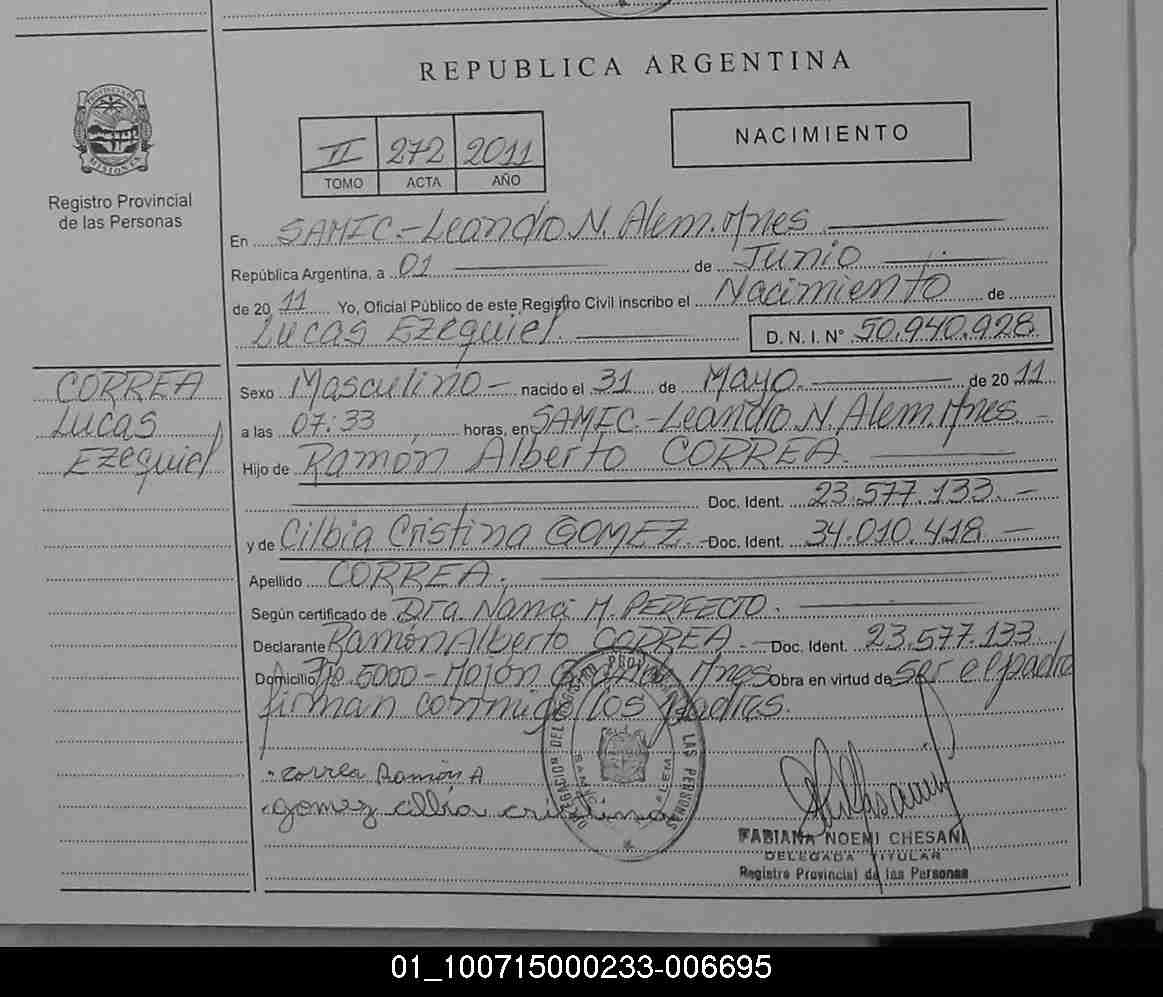 REPUBLICA ARGENTINA
PROVINCIA DE MISIONES
Registro Provincial
de las Personas
II 272 2011
TOMO ACTA AÑO
NACIMIENTO
En SAMIC.-Leandro N. Alem. Mnes
República Argentina, a 01 de Junio
de 2011 Yo, Oficial Público de este Registro Civil inscribo el Nacimiento de
Lucas Ezequiel. D. N. I. N° 50.940.928.
CORREA
Lucas
Ezequiel
Sexo Masculino - nacido el 31 de Mayo. de 2011
a las 07:33 horas, en SAMIC.-Leandro N. Alem. Mnes. -
Hijo de Ramón Alberto CORREA.
Doc. Ident. 23.577.133. -
y de Cilbia Cristina GOMEZ. - Doc. Ident. 34.010.418. -
Apellido CORREA.
Según certificado de Dra. Nanci M. PERFECTO.
Declarante Ramón Alberto CORREA. - Doc. Ident. 23.577.133
Domicilio 5000 - Mojón Mnes Obra en virtud de ser el padre
firman conmigo los padres.
Correa Ramón A
gomez cilbia cristina
DELEGACION DEL REGISTRO PROVINCIAL DE LAS PERSONAS
SAMIC ALEM
FABIANA NOEMI CHESANI
DELEGADA TITULAR
Registro Provincial de las Personas
01_100715000233-006695